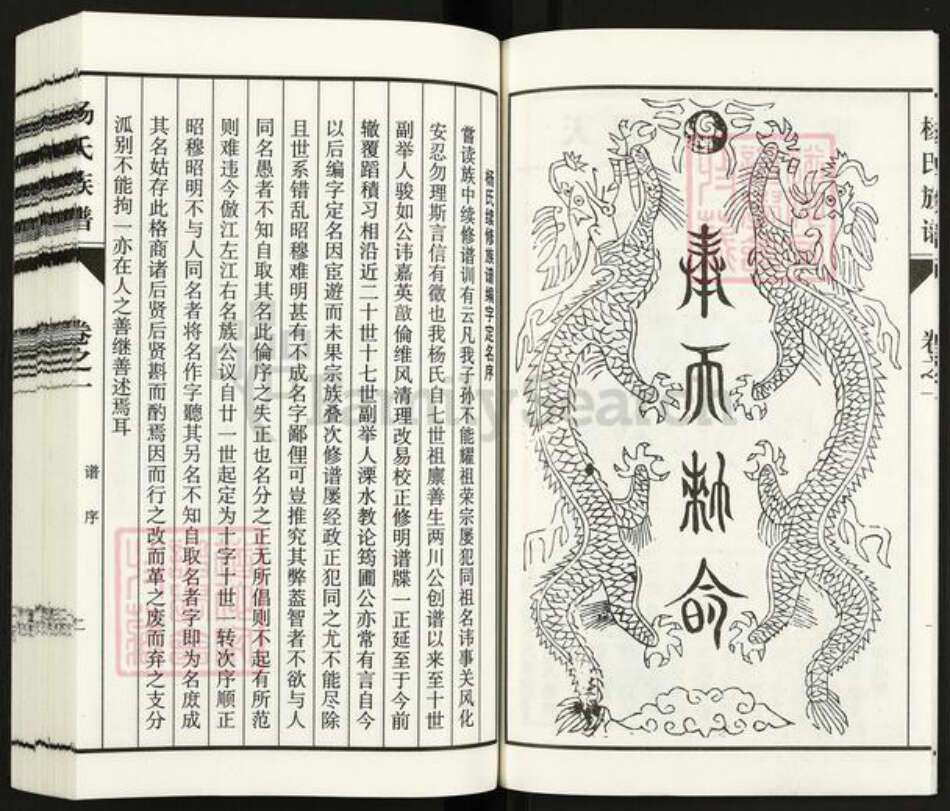 杨氏族谱
卷之一
奉天敕命
杨氏续修族谱编字定名序
嘗读族中续修谱训有云凡我子孙不能耀祖荣宗屡犯同祖名讳事关风化
安忍勿理斯言信有徵也我杨氏自七世祖廪善生两川公创谱以来至十世
副举人骏如公讳嘉英敿倫维风清理改易校正修明谱牒一正延至于今前
辙覆蹈積习相沿近二十世十七世副举人溧水教论筠圃公亦常有言自今
以后编字定名因宦遊而未果宗族叠次修谱屡经政正犯同之尤不能尽除
且世系错乱昭穆难明甚有不成名字鄙俚可豈推究其弊蓋智者不欲与人
同名愚者不知自取其名此倫序之失正也名分之正无所倡则不起有所范
则难违今倣江左江右名族公议自廿一世起定为十字十世一转次序顺正
昭穆昭明不与人同名者将名作字聽其另名不知自取名者字即为名度成
其名姑存此格商诸后贤后贤斟而酌焉因而行之改而革之废而弃之支分
派别不能拘一亦在人之善继善述焉耳
谱序
杨氏族谱
卷之一
FamilySearch